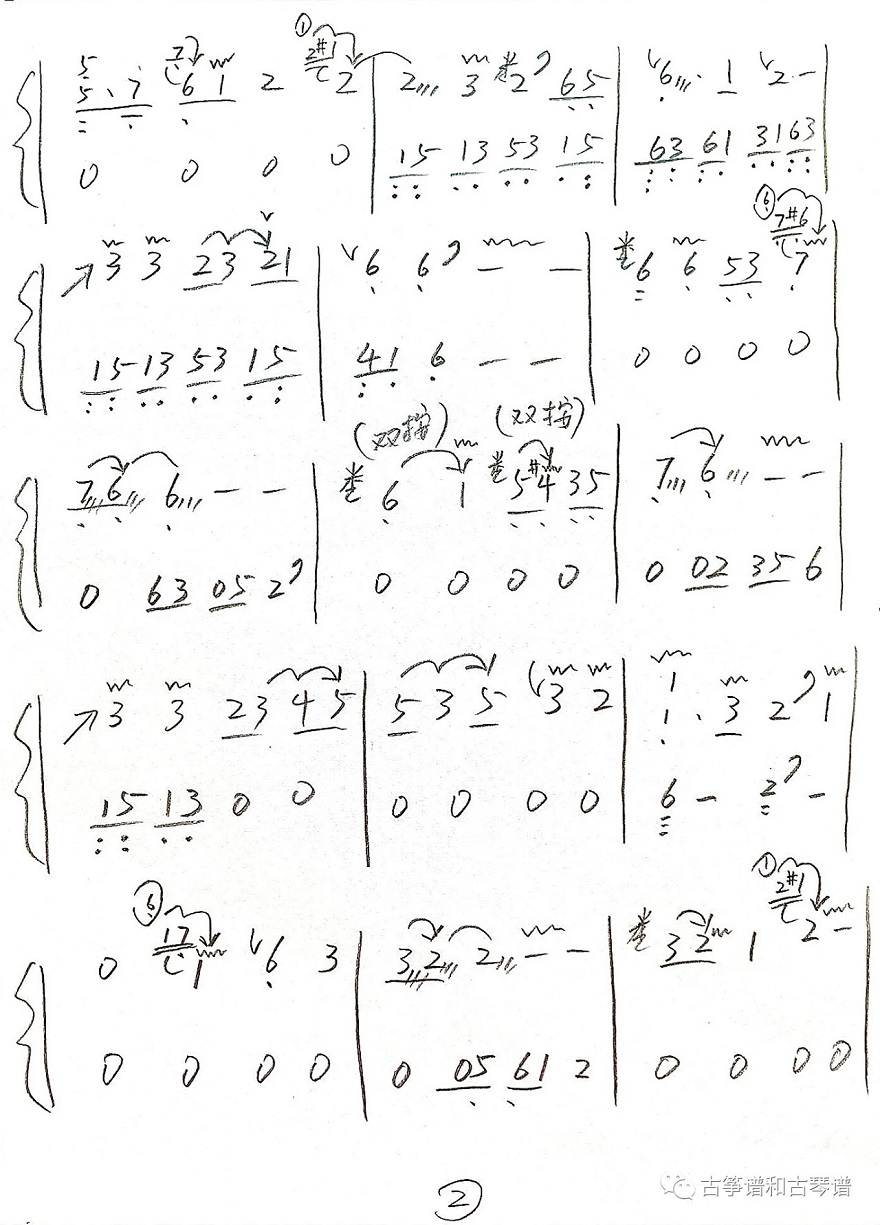 ①
5 7 2#1
5·7 6 1 2 2 | 2 3 2 65 | 6· 1 2 - |
0 0 0 0 | 15 13 53 15 | 63 61 31 63 |
⑥
7#6
3 3 23 21 | 6 6 - - | 6 6 53 7 |
15 13 53 15 | 41 6 - - | 0 0 0 0 |
(双按) (双按)
76 6 - - | 6 1 5#4 35 | 7 6 - - |
0 63 05 2 | 0 0 0 0 | 0 02 35 6 |
1
3 3 23 45 | 5 3 5 3 2 | 1· 3 2 1 |
15 13 0 0 | 0 0 0 0 | 6 - 2 - |
⑥ ①
17 2#1
0 1 6 3 | 32 2 - - | 32 1 2 - |
0 0 0 0 | 0 05 61 2 | 0 0 0 0 |
②
古筝谱和古琴谱